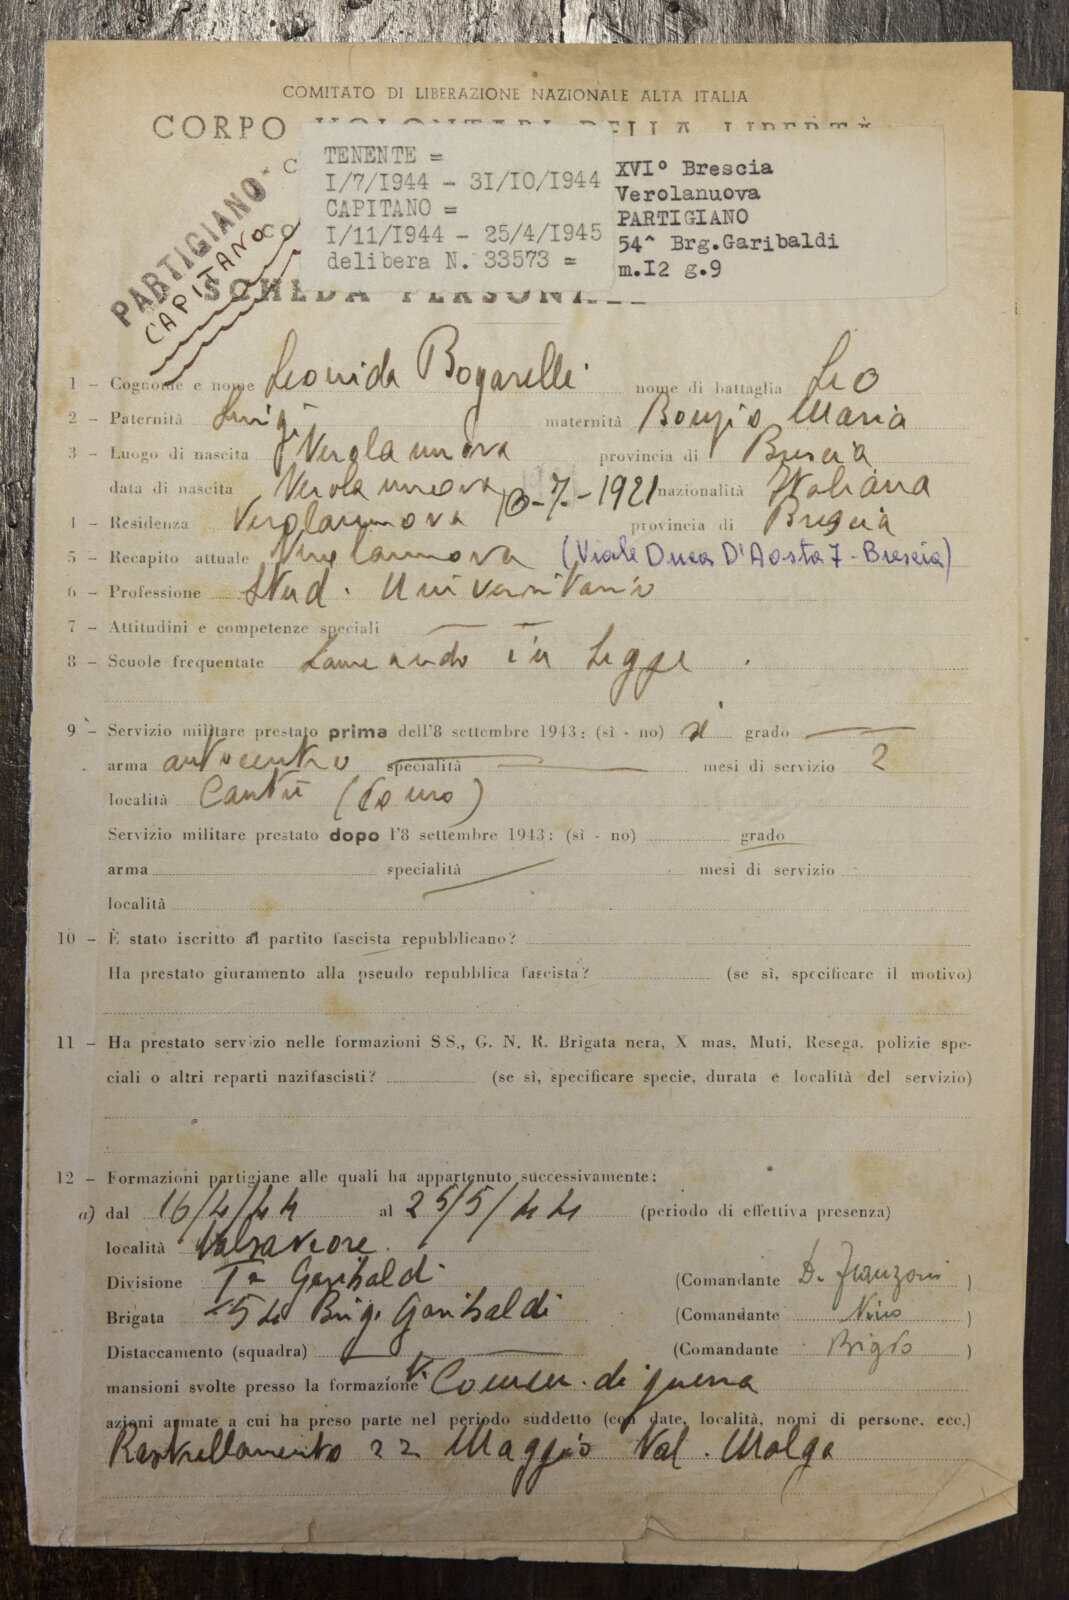 COMITATO DI LIBERAZIONE NAZIONALE ALTA ITALIA
CORPO VOLONTARI DELLA LIBERTÀ
TENENTE =
I/7/I944 - 3I/IO/I944
CAPITANO =
I/II/I944 - 25/4/I945
delibera N. 33573 =
XVI° Brescia
Verolanuova
PARTIGIANO
54^ Brg.Garibaldi
m.I2 g.9
PARTIGIANO
CAPITANO
SCHEDA PERSONALE
1 - Cognome e nome Leonida Bogarelli nome di battaglia Leo
2 - Paternità Luigi maternità Maria
3 - Luogo di nascita Verolanuova provincia di Brescia
data di nascita Verolanuova 10-7-1921 nazionalità Italiana
4 - Residenza Verolanuova provincia di Brescia
5 - Recapito attuale Verolanuova (Viale Duca D'Aosta 7 - Brescia)
6 - Professione Stud. Universitario
7 - Attitudini e competenze speciali —
8 - Scuole frequentate Laureando in Legge.
9 - Servizio militare prestato prima dell'8 settembre 1943: (sì - no) sì grado —
arma autocentro specialità — mesi di servizio 2
località Cantù (Como)
Servizio militare prestato dopo l'8 settembre 1943: (sì - no) grado
arma specialità mesi di servizio
località
10 - È stato iscritto al partito fascista repubblicano?
Ha prestato giuramento alla pseudo repubblica fascista? (se sì, specificare il motivo)
11 - Ha prestato servizio nelle formazioni S.S., G. N. R. Brigata nera, X mas, Muti, Resega, polizie spe-
ciali o altri reparti nazifascisti? (se sì, specificare specie, durata e località del servizio)
12 - Formazioni partigiane alle quali ha appartenuto successivamente:
a) dal 16/4/44 al 25/5/44 (periodo di effettiva presenza)
località Valsaviore.
Divisione Iª Garibaldi (Comandante D. Franzoni)
Brigata 54 Brig. Garibaldi (Comandante Nino)
Distaccamento (squadra) — (Comandante)
mansioni svolte presso la formazione V. Comm. di guerra
azioni armate a cui ha preso parte nel periodo suddetto (con date, località, nomi di persone, ecc.)
Rastrellamento 22 Maggio Val. Malga